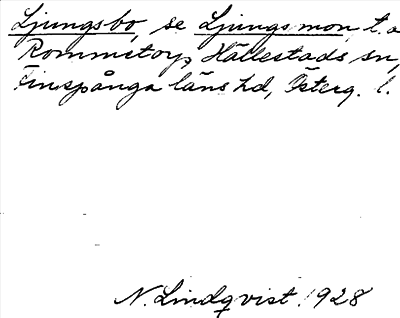 Ljungsbo, se Ljungsmon t. a.
Rommetorp, Hällestads sn,
Finspånga läns hd, Österg. l.
N. Lindqvist 1928